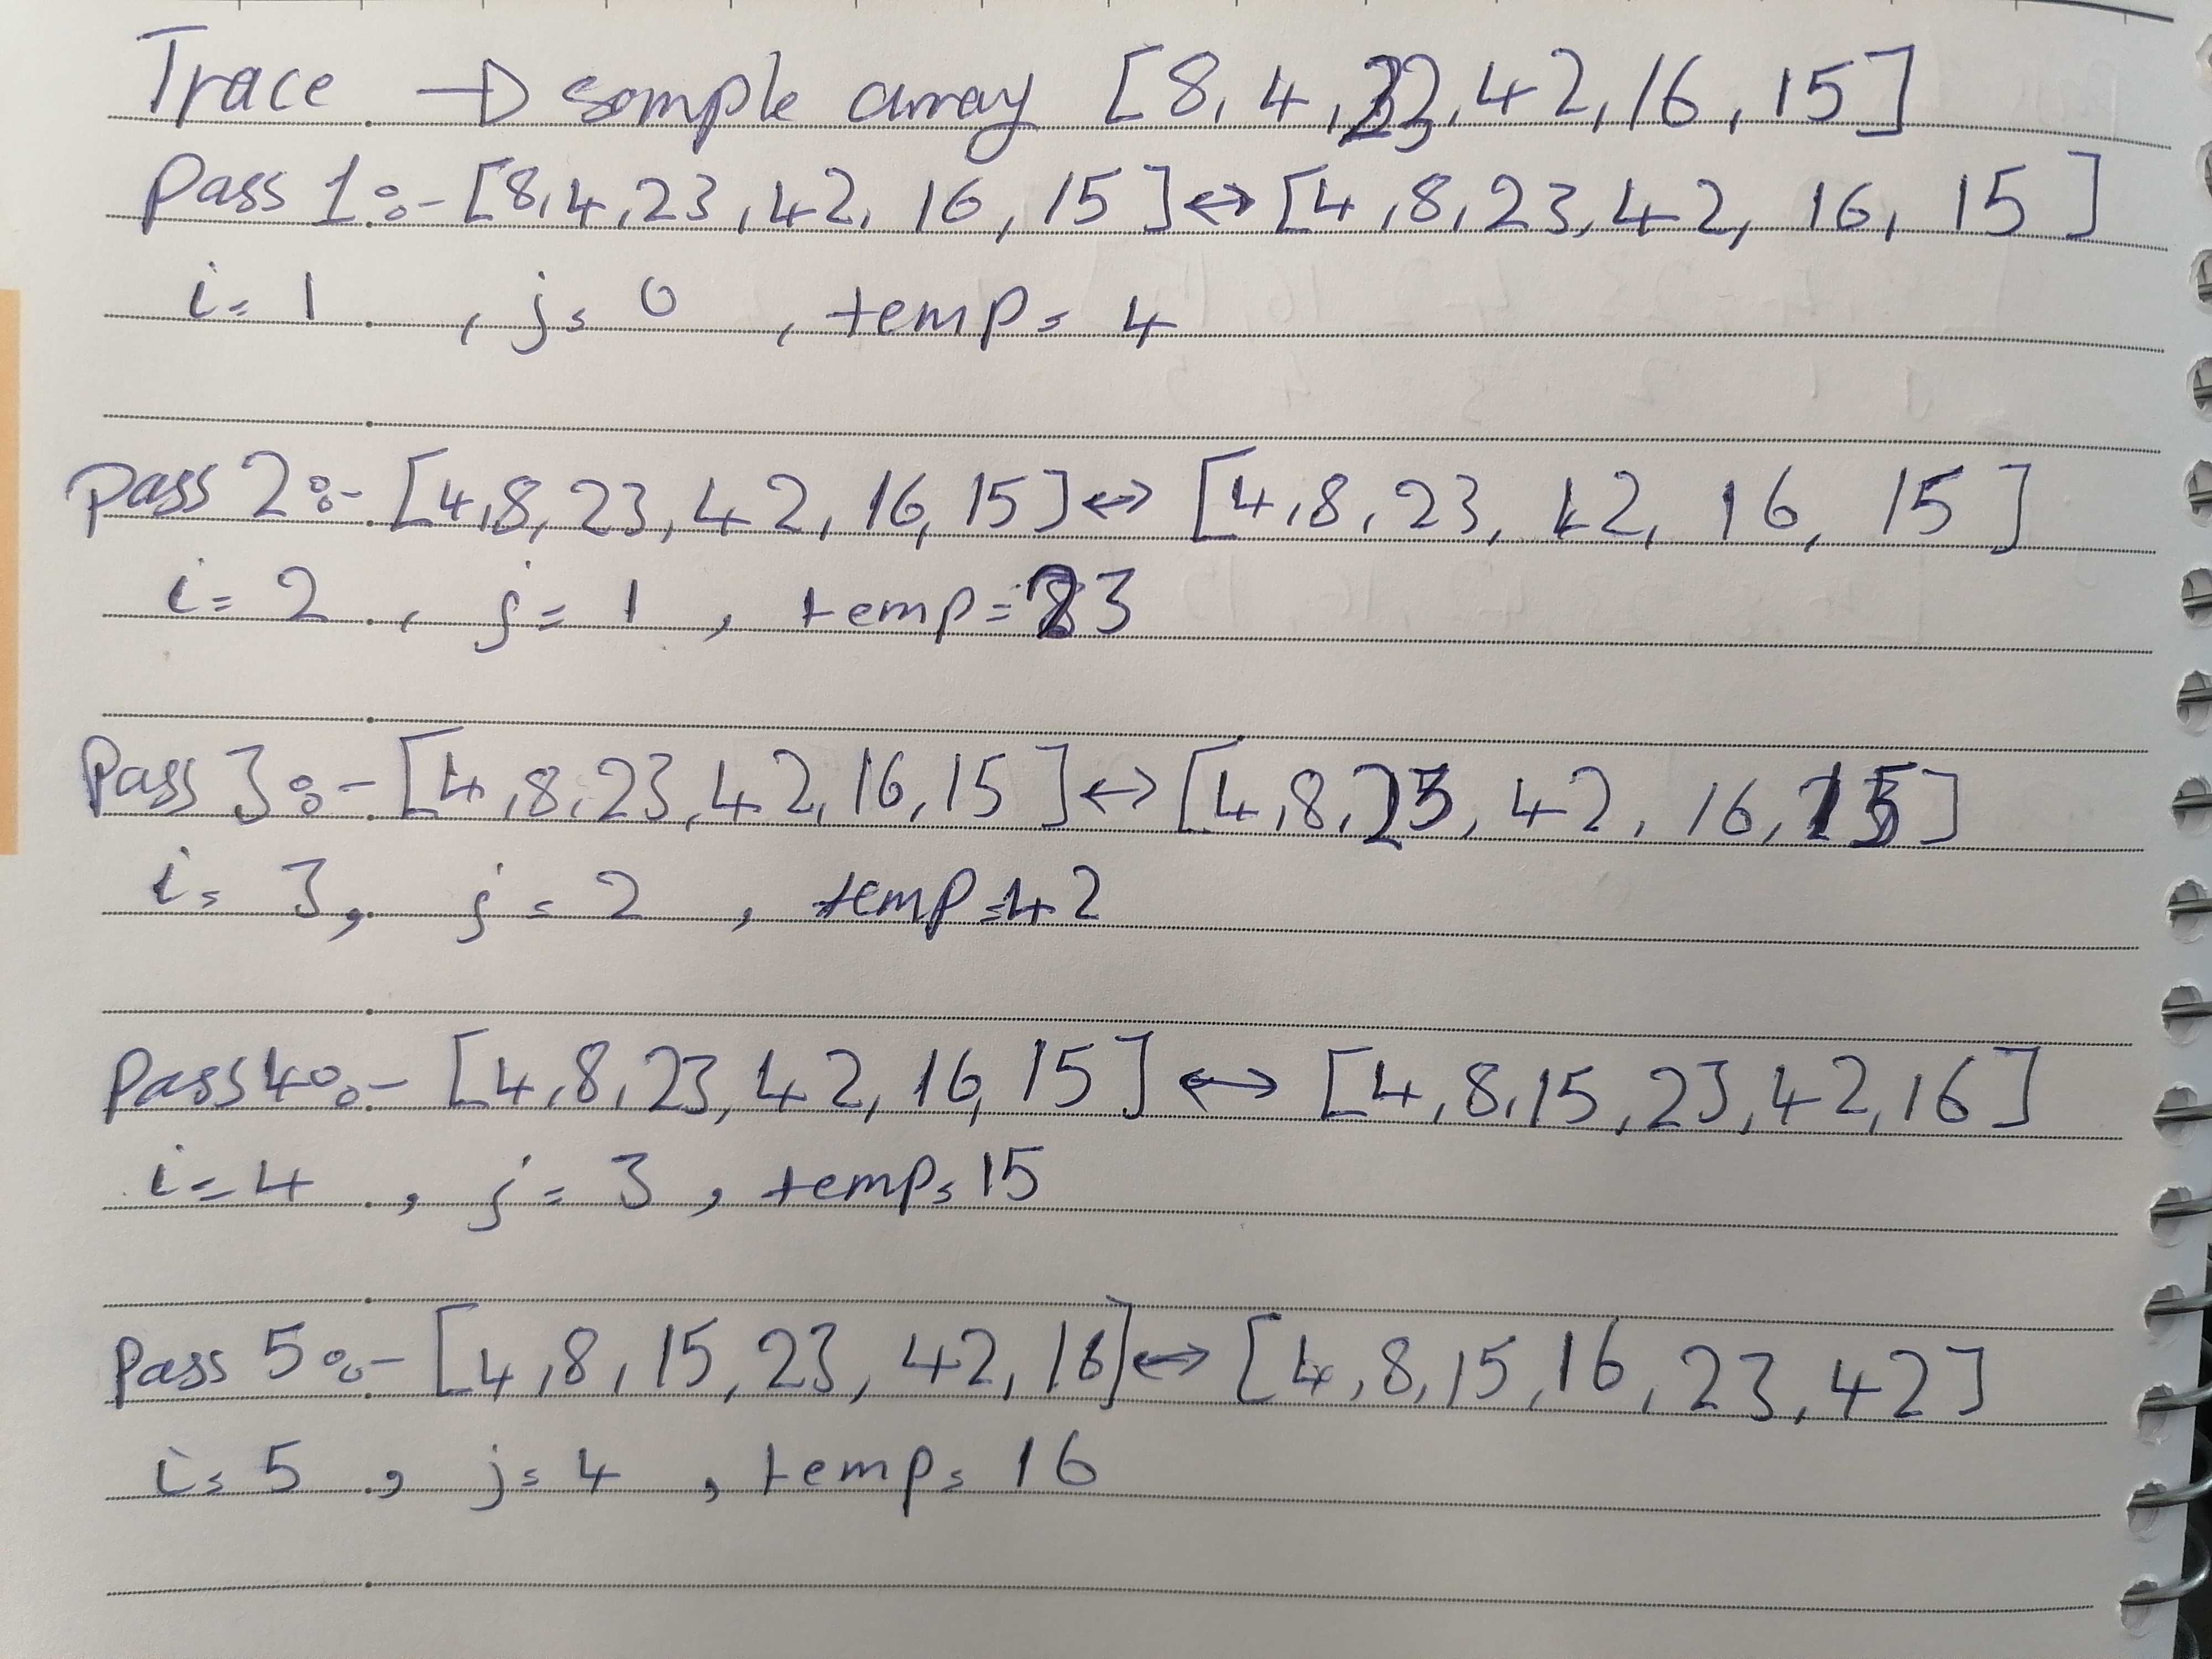 Trace → sample array [8, 4, 23, 42, 16, 15]
Pass 1:- [8,4,23,42, 16, 15] ↔ [4,8,23,42, 16, 15]
i= 1 , j= 0 , temp= 4
Pass 2:- [4,8,23,42,16,15] ↔ [4,8,23, 42, 16, 15]
i= 2 , j= 1 , temp= 23
Pass 3:- [4,8,23,42,16,15] ↔ [4,8,23, 42, 16, 15]
i= 3, j= 2 , temp=42
Pass 4:- [4,8,23,42,16,15] ↔ [4,8,15,23,42,16]
i= 4 , j= 3 , temp= 15
Pass 5:- [4,8,15,23,42,16] ↔ [4,8,15,16,23,42]
i= 5 , j= 4 , temp= 16